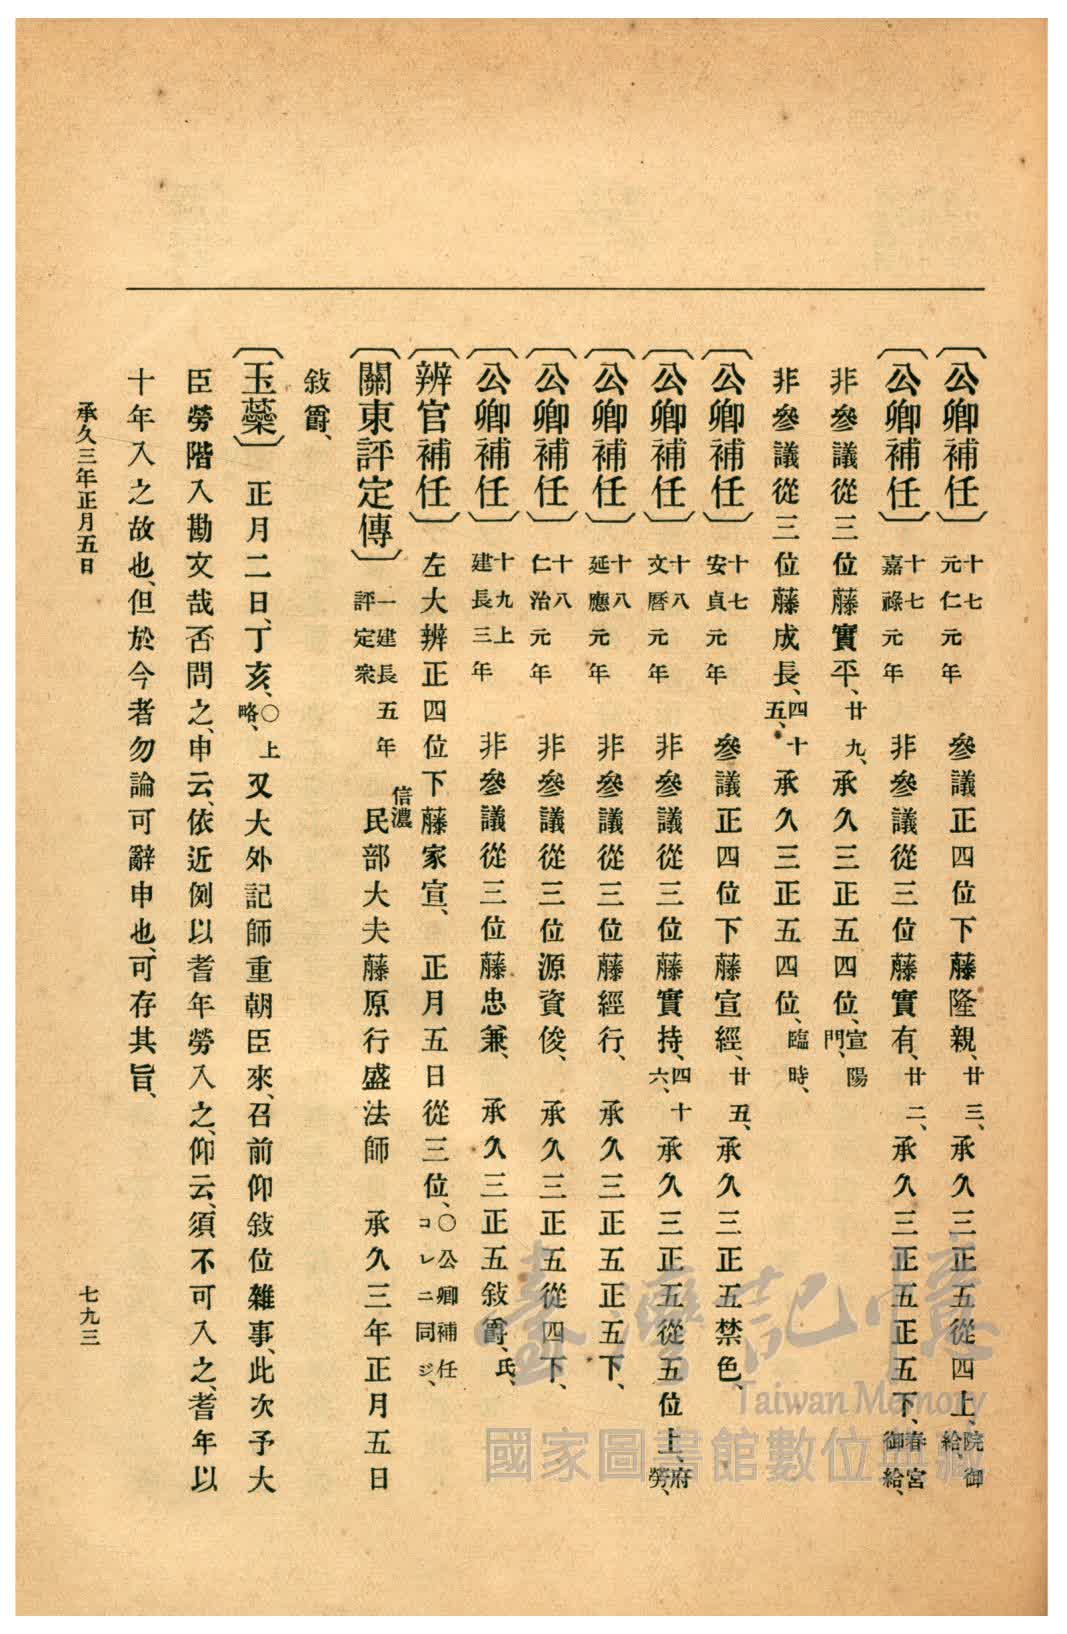 〔公卿補任〕十七元仁元年 參議正四位下藤隆親、廿三、承久三正五從四上、院御給、
〔公卿補任〕十七嘉祿元年 非參議從三位藤實有、廿二、承久三正五正五下、春宮御給、
非參議從三位藤實平、廿九、承久三正五四位、宣陽門、
非參議從三位藤成長、四十五、承久三正五四位、臨時、
〔公卿補任〕十七安貞元年 參議正四位下藤宣經、廿五、承久三正五禁色、
〔公卿補任〕十八文曆元年 非參議從三位藤實持、四十六、承久三正五從五位上、府勞、
〔公卿補任〕十八延應元年 非參議從三位藤經行、承久三正五正五下、
〔公卿補任〕十八仁治元年 非參議從三位源資俊、承久三正五從四下、
〔公卿補任〕十九上建長三年 非參議從三位藤忠兼、承久三正五敍爵、氏、
〔辨官補任〕左大辨正四位下藤家宣、正月五日從三位、〇公卿補任コレニ同ジ、
〔關東評定傳〕一建長五年評定衆 信濃民部大夫藤原行盛法師 承久三年正月五日
敍爵、
〔玉蘂〕正月二日、丁亥、〇上略、又大外記師重朝臣來、召前仰敍位雜事、此次予大
臣勞階入勘文哉否問之、申云、依近例以耆年勞入之、仰云、須不可入之、耆年以
十年入之故也、但於今者勿論可辭申也、可存其旨、
承久三年正月五日
七九三
臺灣記憶
Taiwan Memory
國家圖書館數位典藏